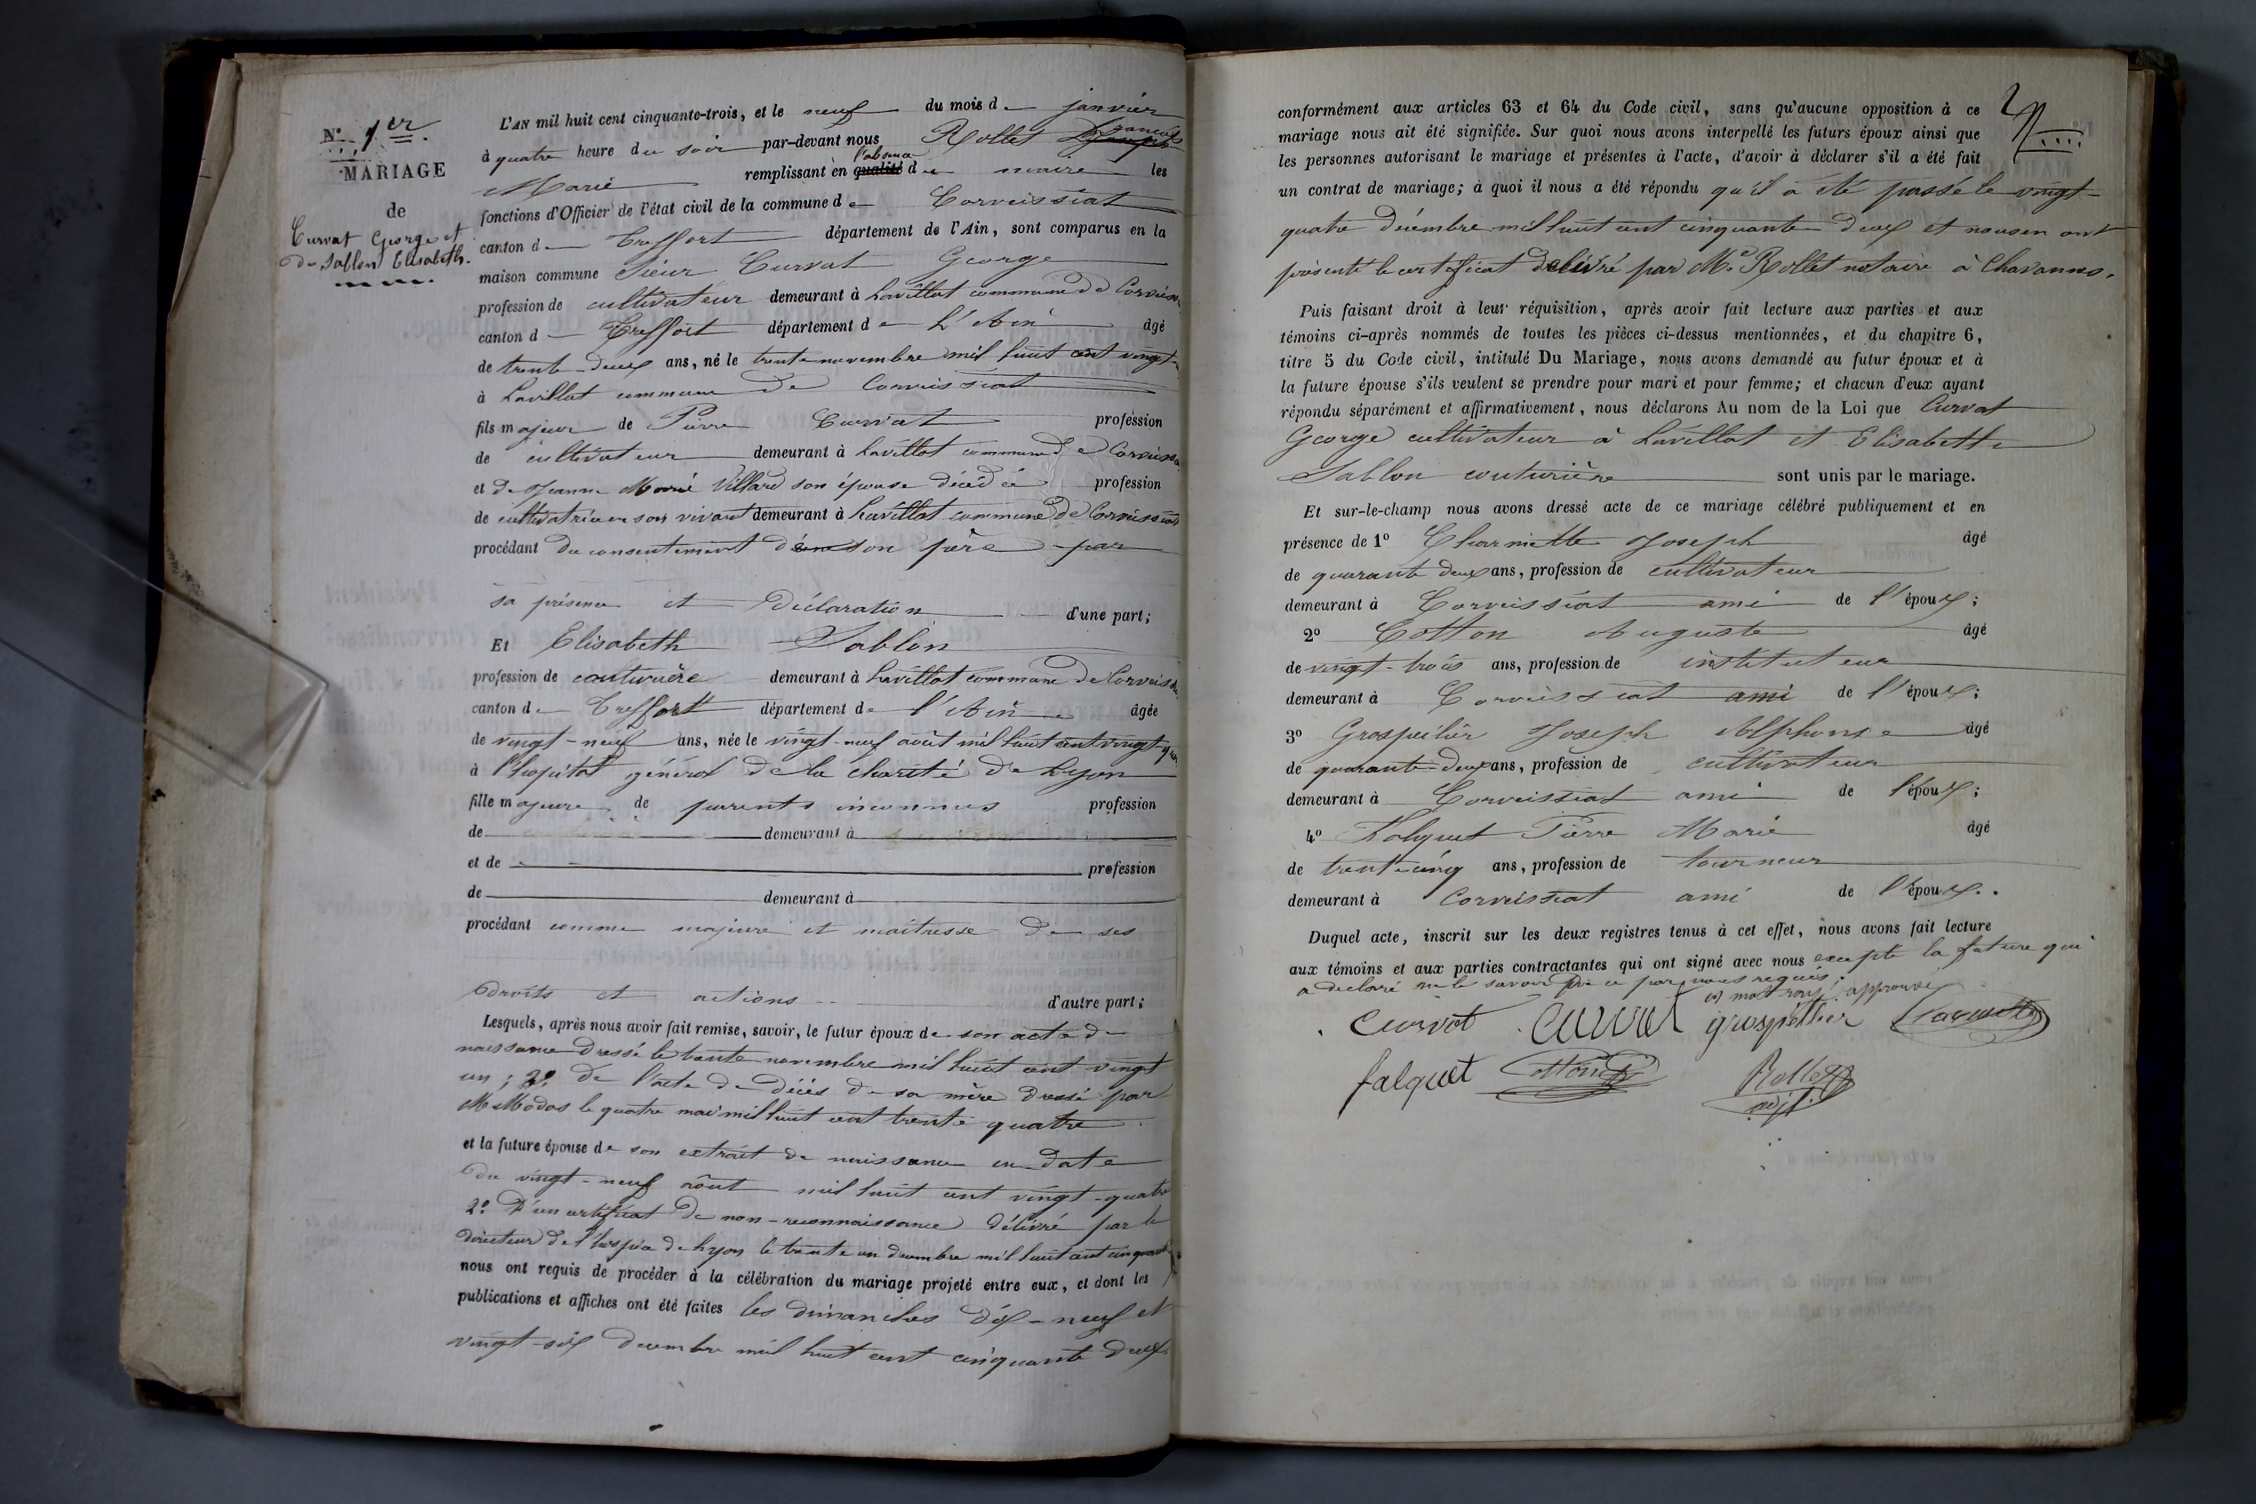 N° 1er
MARIAGE
de
Curvat George et
de Sablon Elisabeth.
L'AN mil huit cent cinquante-trois, et le neuf du mois de janvier
à quatre heure du soir par-devant nous Rollet Joseph françois
Marie remplissant en qualité l'absence du maire les
fonctions d'Officier de l'état civil de la commune de Corveissiat
canton de Treffort département de l'Ain, sont comparus en la
maison commune Sieur Curvat George
profession de cultivateur demeurant à Lavillat commune de Corveissiat
canton de Treffort département de L'Ain âgé
de trente-deux ans, né le trente novembre mil huit cent vingt
à Lavillat commune de Corveissiat
fils majeur de Pierre Curvat profession
de cultivateur demeurant à Lavillat commune de Corveissiat
et de Jeanne Marie Villard son épouse décédée profession
de cultivatrice en son vivant demeurant à Lavillat commune de Corveissiat
procédant du consentement de son père par
sa présence et déclaration d'une part;
Et Elisabeth Sablon
profession de couturière demeurant à Lavillat commune de Corveissiat
canton de Treffort département de l'Ain âgée
de vingt-neuf ans, née le vingt-neuf août mil huit cent vingt-quatre
à l'hopital général de la charité de Lyon
fille majeure de parents inconnus profession
de demeurant à
et de profession
de demeurant à
procédant comme majeure et maîtresse de ses
droits et actions d'autre part;
Lesquels, après nous avoir fait remise, savoir, le futur époux de son acte de
naissance dressé le trente novembre mil huit cent vingt
un; 2° de l'acte de décès de sa mère dressé par
M Modas le quatre mai mil huit cent trente quatre
et la future épouse de son extrait de naissance en date
du vingt-neuf août mil huit cent vingt-quatre
2° D'un certificat de non-reconnaissance délivré par le
directeur de l'hospice de Lyon le trente un décembre mil huit cent cinquante
nous ont requis de procéder à la célébration du mariage projeté entre eux, et dont les
publications et affiches ont été faites les dimanches dix-neuf et
vingt-six décembre mil huit cent cinquante deux
conformément aux articles 63 et 64 du Code civil, sans qu'aucune opposition à ce
mariage nous ait été signifiée. Sur quoi nous avons interpellé les futurs époux ainsi que
les personnes autorisant le mariage et présentes à l'acte, d'avoir à déclarer s'il a été fait
un contrat de mariage; à quoi il nous a été répondu qu'il a été passé le vingt-
quatre décembre mil huit cent cinquante deux et nous en ont
présenté le certificat délivré par Me Rollet notaire à Chavannes.
Puis faisant droit à leur réquisition, après avoir fait lecture aux parties et aux
témoins ci-après nommés de toutes les pièces ci-dessus mentionnées, et du chapitre 6,
titre 5 du Code civil, intitulé Du Mariage, nous avons demandé au futur époux et à
la future épouse s'ils veulent se prendre pour mari et pour femme; et chacun d'eux ayant
répondu séparément et affirmativement, nous déclarons Au nom de la Loi que Curvat
George cultivateur à Lavillat et Elisabeth
Sablon couturière sont unis par le mariage.
Et sur-le-champ nous avons dressé acte de ce mariage célébré publiquement et en
présence de 1° Charnette Joseph âgé
de quarante deux ans, profession de cultivateur
demeurant à Corveissiat ami de l'époux;
2° Cotton Auguste âgé
de vingt-trois ans, profession de instituteur
demeurant à Corveissiat ami de l'époux;
3° Grospellier Joseph Alphonse âgé
de quarante-deux ans, profession de cultivateur
demeurant à Corveissiat ami de l'époux;
4° Falquet Pierre Marie âgé
de trente-cinq ans, profession de tourneur
demeurant à Corveissiat ami de l'époux.
Duquel acte, inscrit sur les deux registres tenus à cet effet, nous avons fait lecture
aux témoins et aux parties contractantes qui ont signé avec nous excepté la future qui
a déclaré ne le savoir de ce par nous requis.
mots rayés approuvés
Curvat Curvat grospellier Charnette
falquet Cotton Rollet
adjt.